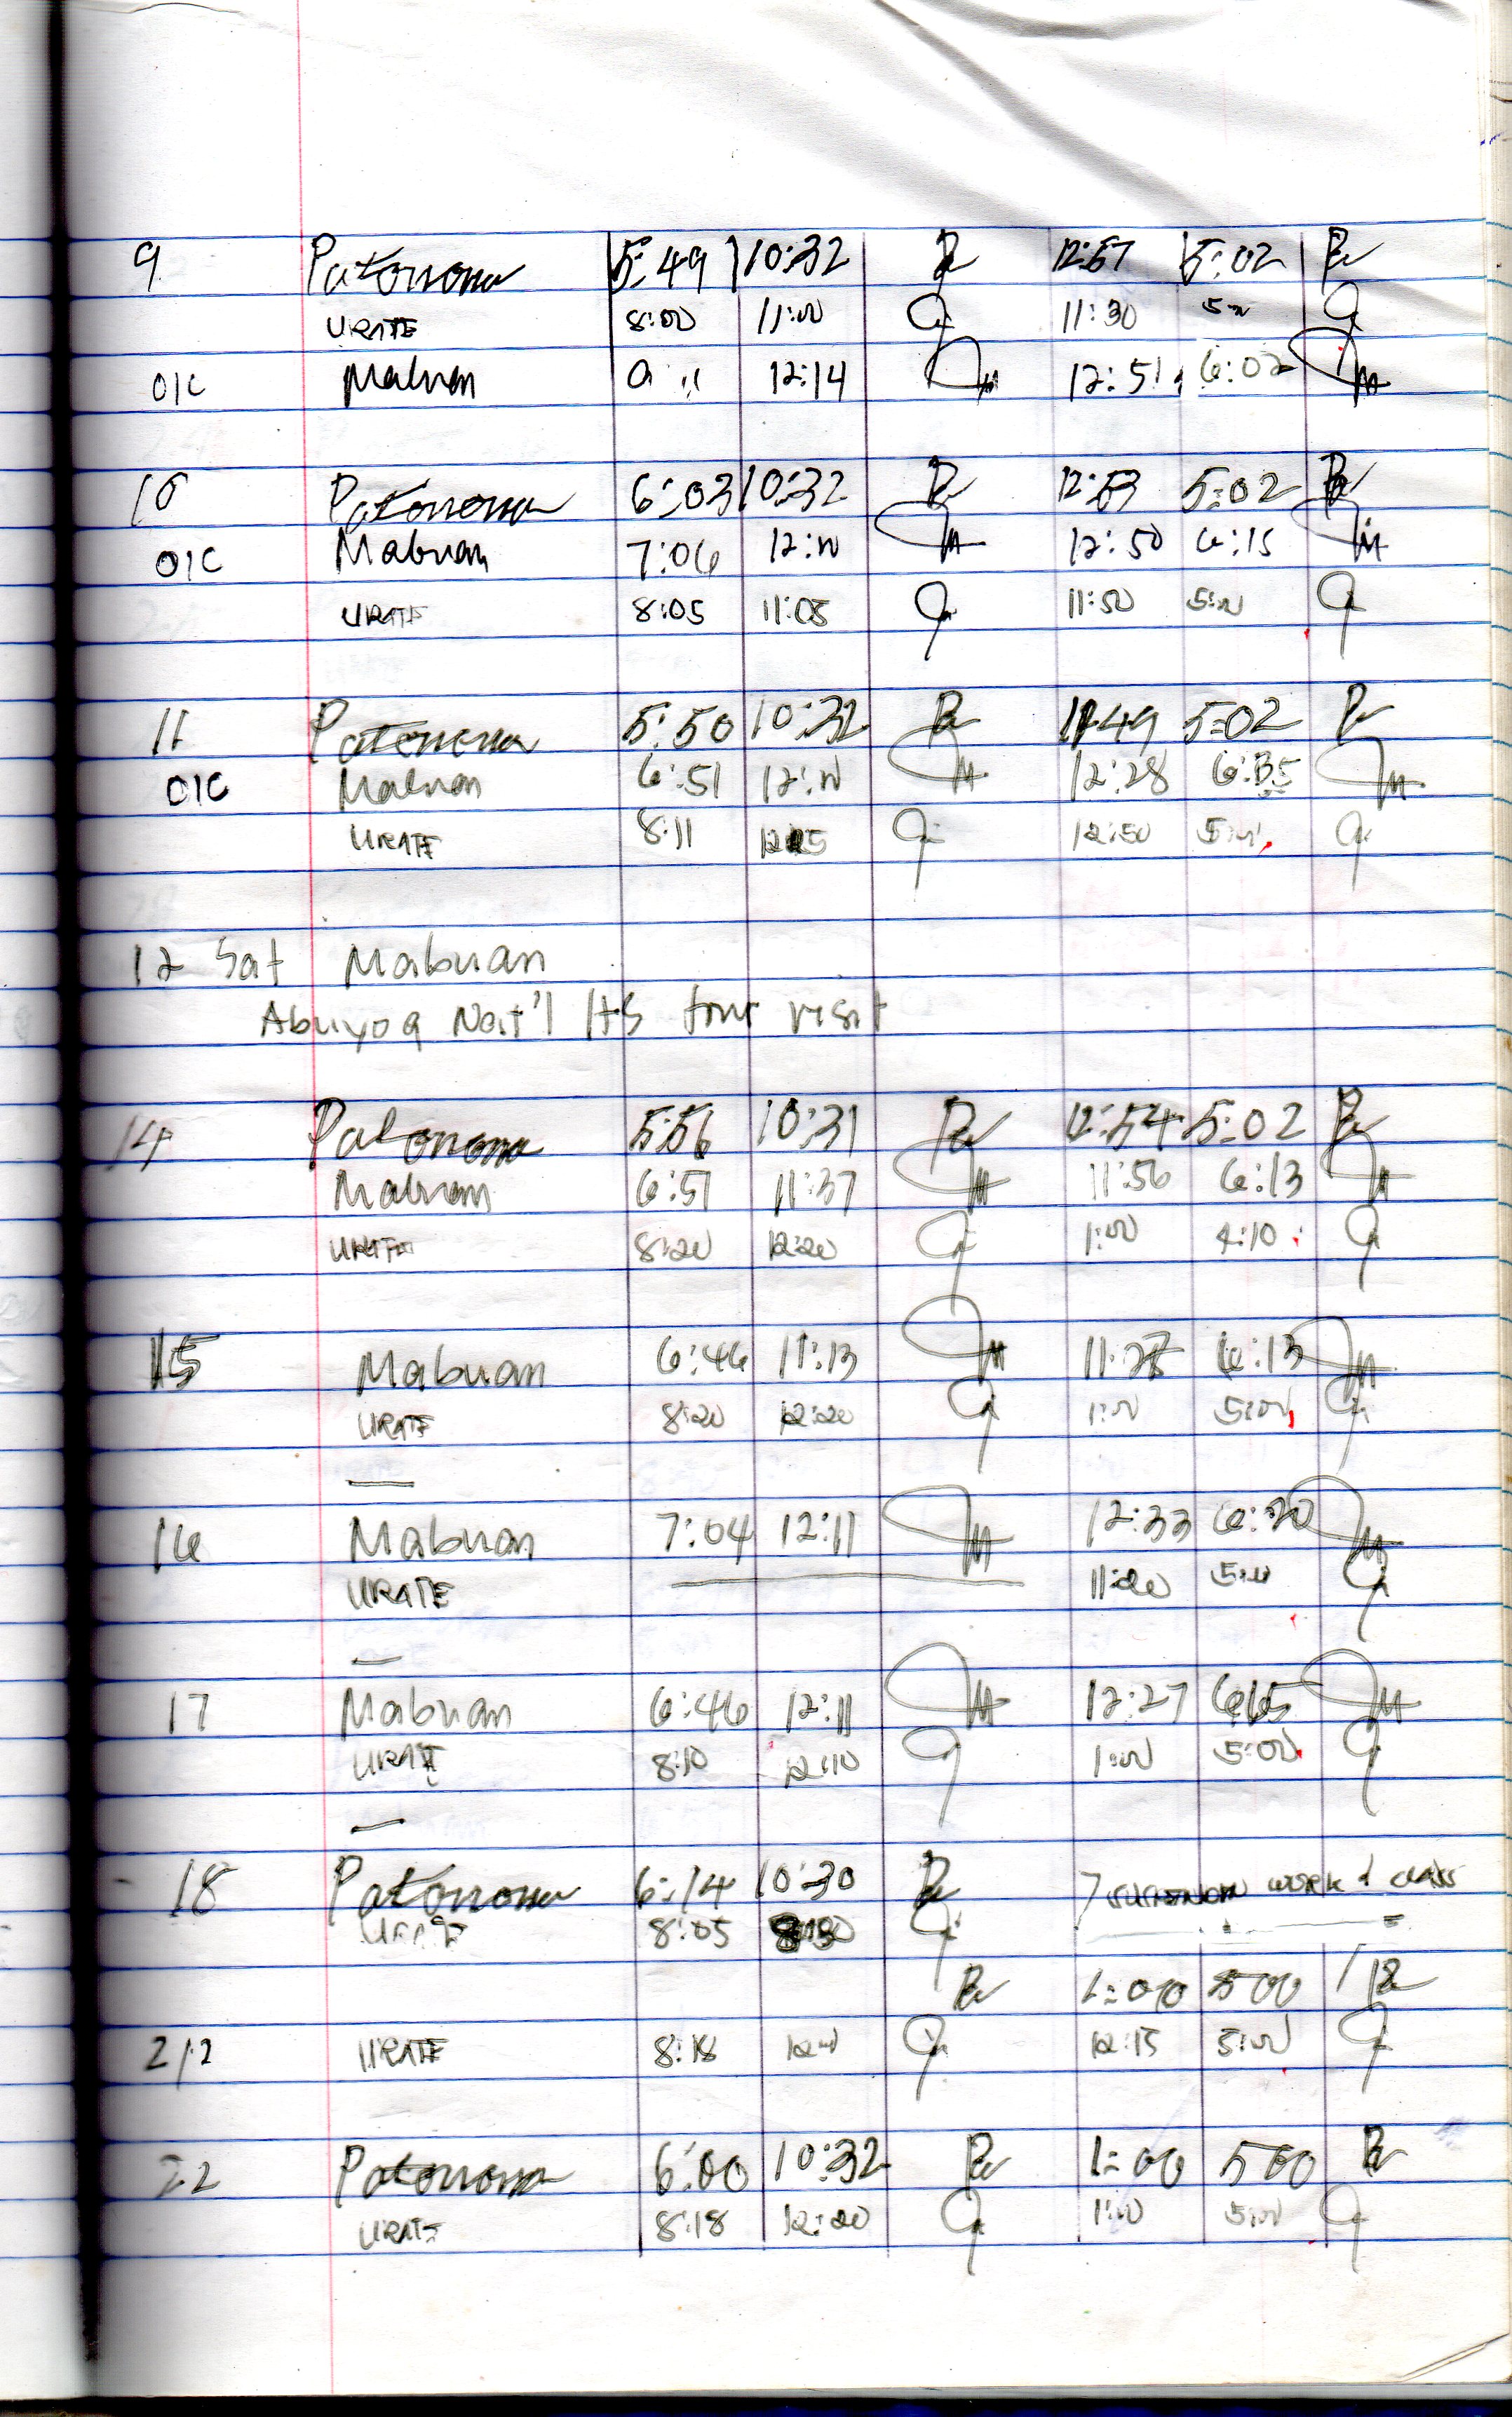 9 Patonona 5:49 10:32 12:57 5:02
URATE 8:00 11:00 11:30 5:00
OIC Mabuan 12:14 12:51 6:02
10 Patonona 6:03 10:32 12:53 5:02
OIC Mabuan 7:06 12:00 12:50 6:15
URATE 8:05 11:05 11:50 5:00
11 Patonona 5:50 10:32 11:49 5:02
OIC Mabuan 6:51 12:00 12:28 6:35
URATE 8:11 12:50
12 Sat Mabuan
Abuyog Nat'l HS tour visit
14 Patonona 5:56 10:31 12:54 5:02
Mabuan 6:51 11:37 11:56 6:13
URATE 8:20 12:20 1:00 4:10
15 Mabuan 6:46 11:13 6:13
URATE 8:20 12:20 1:00 5:00
16 Mabuan 7:04 12:11 12:33 6:30
URATE 11:20 5:00
17 Mabuan 6:46 12:11 12:27 6:15
URATE 8:10 12:10 1:00 5:00
18 Patonona 6:14 10:30 work & class
URATE 8:05
1:00 5:00
URATE 8:18 12:00 12:15 5:00
22 Patonona 6:00 10:32 1:00 5:00
URATE 8:18 12:20 1:00 5:00